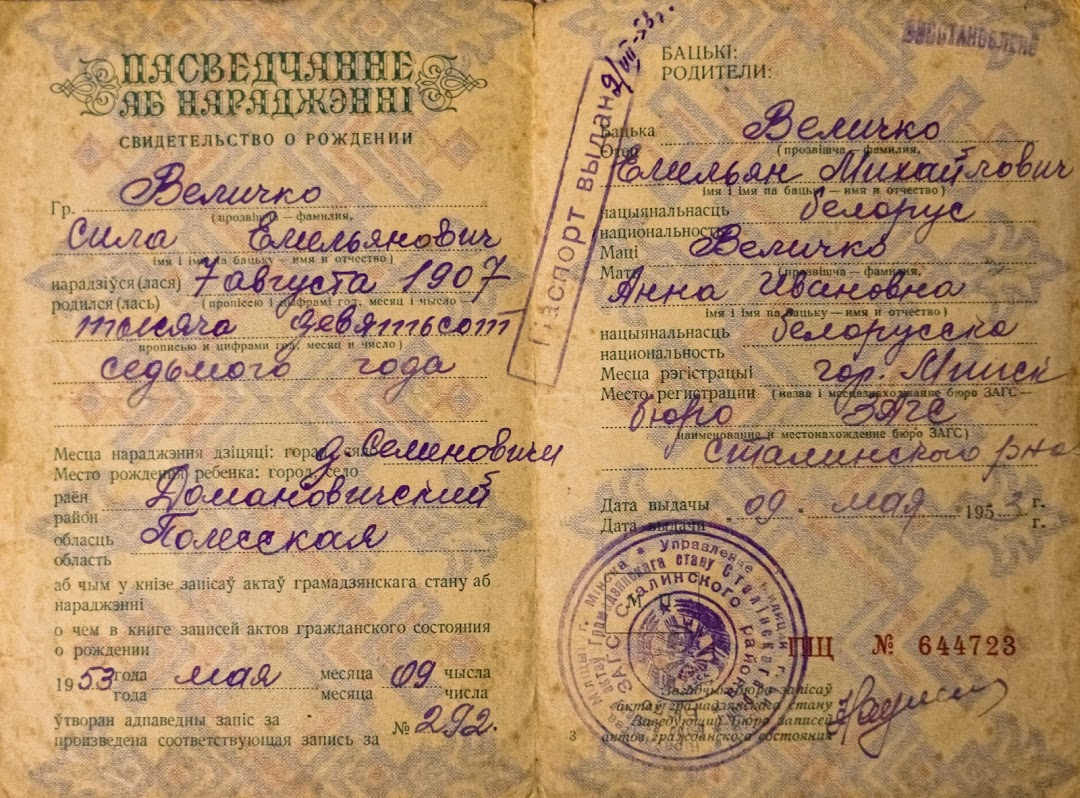 ПАСВЕДЧАННЕ
АБ НАРАДЖЭННІ
СВИДЕТЕЛЬСТВО О РОЖДЕНИИ
Гр. Величко
(прозвішча — фамилия,
Сила Емельянович
імя і імя па бацьку - имя и отчество)
нарадзіўся(лася) 7 августа 1907
родился(лась) (пропіссю і цыфрамі год, месяц і чысло
тысяча девятьсот
прописью и цифрами год, месяц и число)
седьмого года
Месца нараджэння дзіцяці: горад, сяло д. Семеновичи
Место рождения ребенка: город, село
раён Домановичский
район
обласць Полесская
область
аб чым у кнізе запісаў актаў грамадзянскага стану аб
нараджэнні
о чем в книге записей актов гражданского состояния
о рождении
1953 года мая месяца 09 чысла
года месяца числа
ўтворан адпаведны запіс за
произведена соответствующая запись за № 292.
Паспорт выдан 2/VII-53г.
ВОССТАНОВЛЕНО
БАЦЬКІ:
РОДИТЕЛИ:
Бацька Величко
Отец (прозвішча — фамилия,
Емельян Михайлович
імя і імя па бацьку — имя и отчество)
нацыянальнасць белорус
национальность
Маці Величко
Мать (прозвішча — фамилия,
Анна Ивановна
імя і імя па бацьку — имя и отчество)
нацыянальнасць белорусска
национальность
Месца рэгістрацыі гор. Минск
Место регистрации (назва і месцазнаходжанне бюро ЗАГС —
бюро ЗАГС
наименование и местонахождение бюро ЗАГС)
Сталинского р-на
Дата выдачы 09 мая 1953 г.
Дата выдачи г.
М П
Управление милиции г. Минска
ЗАГС Сталинского района
ПЩ № 644723
Загадчык бюро запісаў
актаў грамадзянскага стану
Заведующий бюро записей
актов гражданского состояния
3